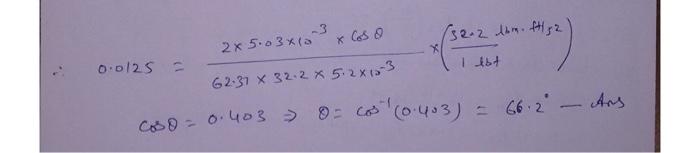 ∴ 0.0125 = 2 × 5.03×10⁻³ × Cosθ / 62.37 × 32.2 × 5.2×10⁻³ × (32.2 lbm.ft/s2 / 1 lbf)
Cosθ = 0.403 ⇒ θ = cos⁻¹(0.403) = 66.2° — Ans